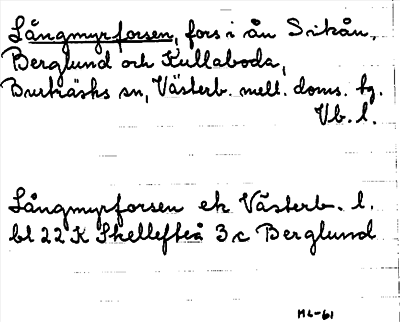 Långmyrforsen, fors i ån Sikån,
Berglund och Kullaboda,
Burträsks sn, Västerb. mell. doms. tg.
Vb. l.
Långmyrforsen ek Västerb. l.
bl 22 K Skellefteå 3c Berglund
ML-61